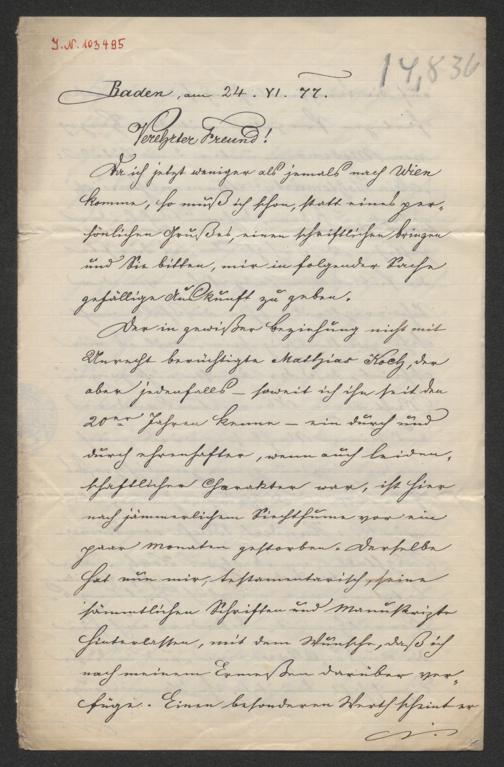 J.N. 103485
14,836
Baden, am 24. VI. 77.
Verehrter Freund!
Da ich jetzt weniger als jemals nach Wien
komme, so muß ich schon, statt eines per-
sönlichen Grußes, einen schriftlichen bringen
und Sie bitten, mir in folgender Sache
gefällige Auskunft zu geben.
Der in gewißer Beziehung nicht mit
Unrecht berüchtigte Mathias Koch, der
aber jedenfalls – soweit ich ihn seit den
20er Jahren kenne – ein durch und
durch ehrenhafter, wenn auch leiden-
schaftlicher Charakter war, ist hier
nach jämmerlichem Siechthume vor ein
paar Monaten gestorben. Derselbe
hat nun mir, testamentarisch, seine
sämmtlichen Schriften und Manuskripte
hinterlassen, mit dem Wunsche, daß ich
nach meinem Ermeßen darüber ver-
füge. Einen besonderen Werth scheint er